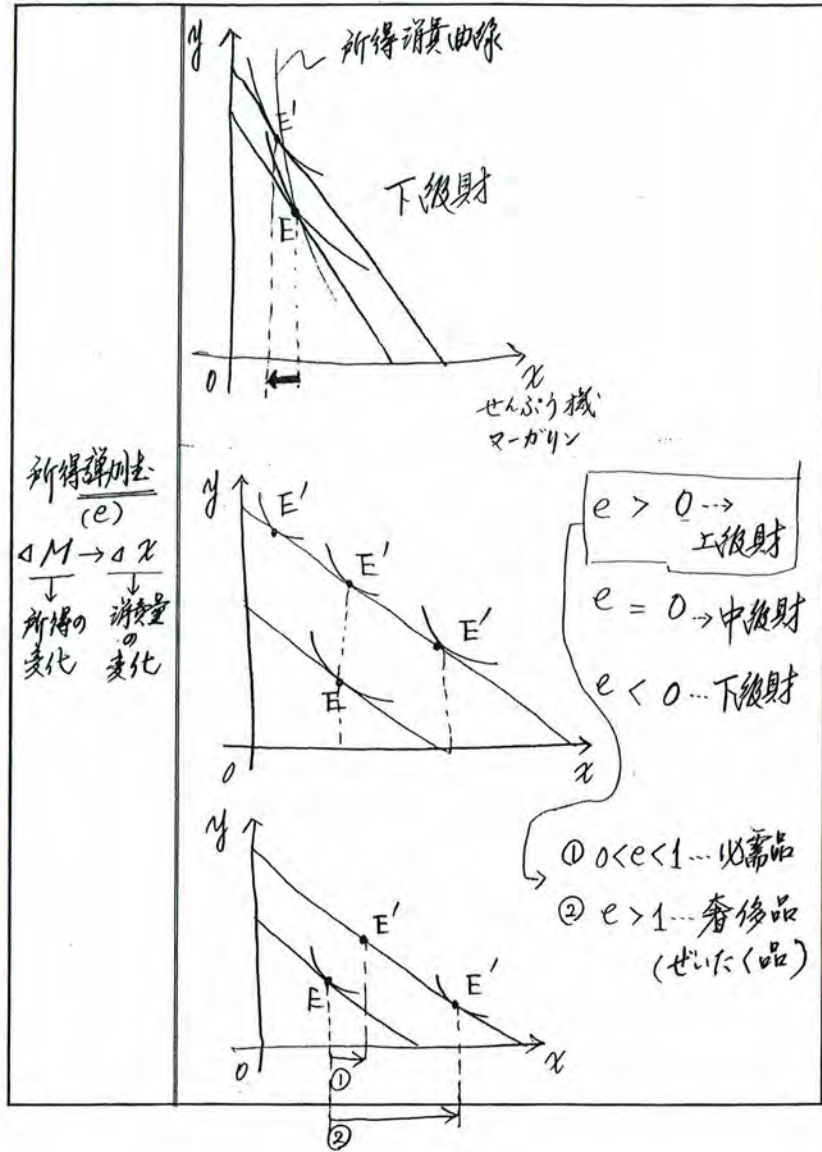 所得弾力性
(e)
ΔM → Δx
↓ ↓
所得の変化 消費量の変化
y
所得消費曲線
E'
下級財
E
0
x
せんぷう機
マーガリン
y
E'
E'
E'
E
0
x
e > 0 …→
上級財
e = 0 → 中級財
e < 0 … 下級財
y
E'
E
E'
0
x
①
②
① 0<e<1 … 必需品
② e>1 … 奢侈品
(ぜいたく品)